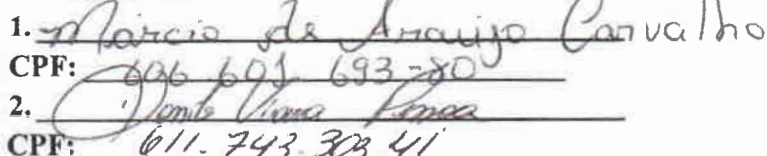 1. Marcio de Araujo Carvalho
CPF: 606 601 693-80
2. Viana
CPF: 611.743.303 41